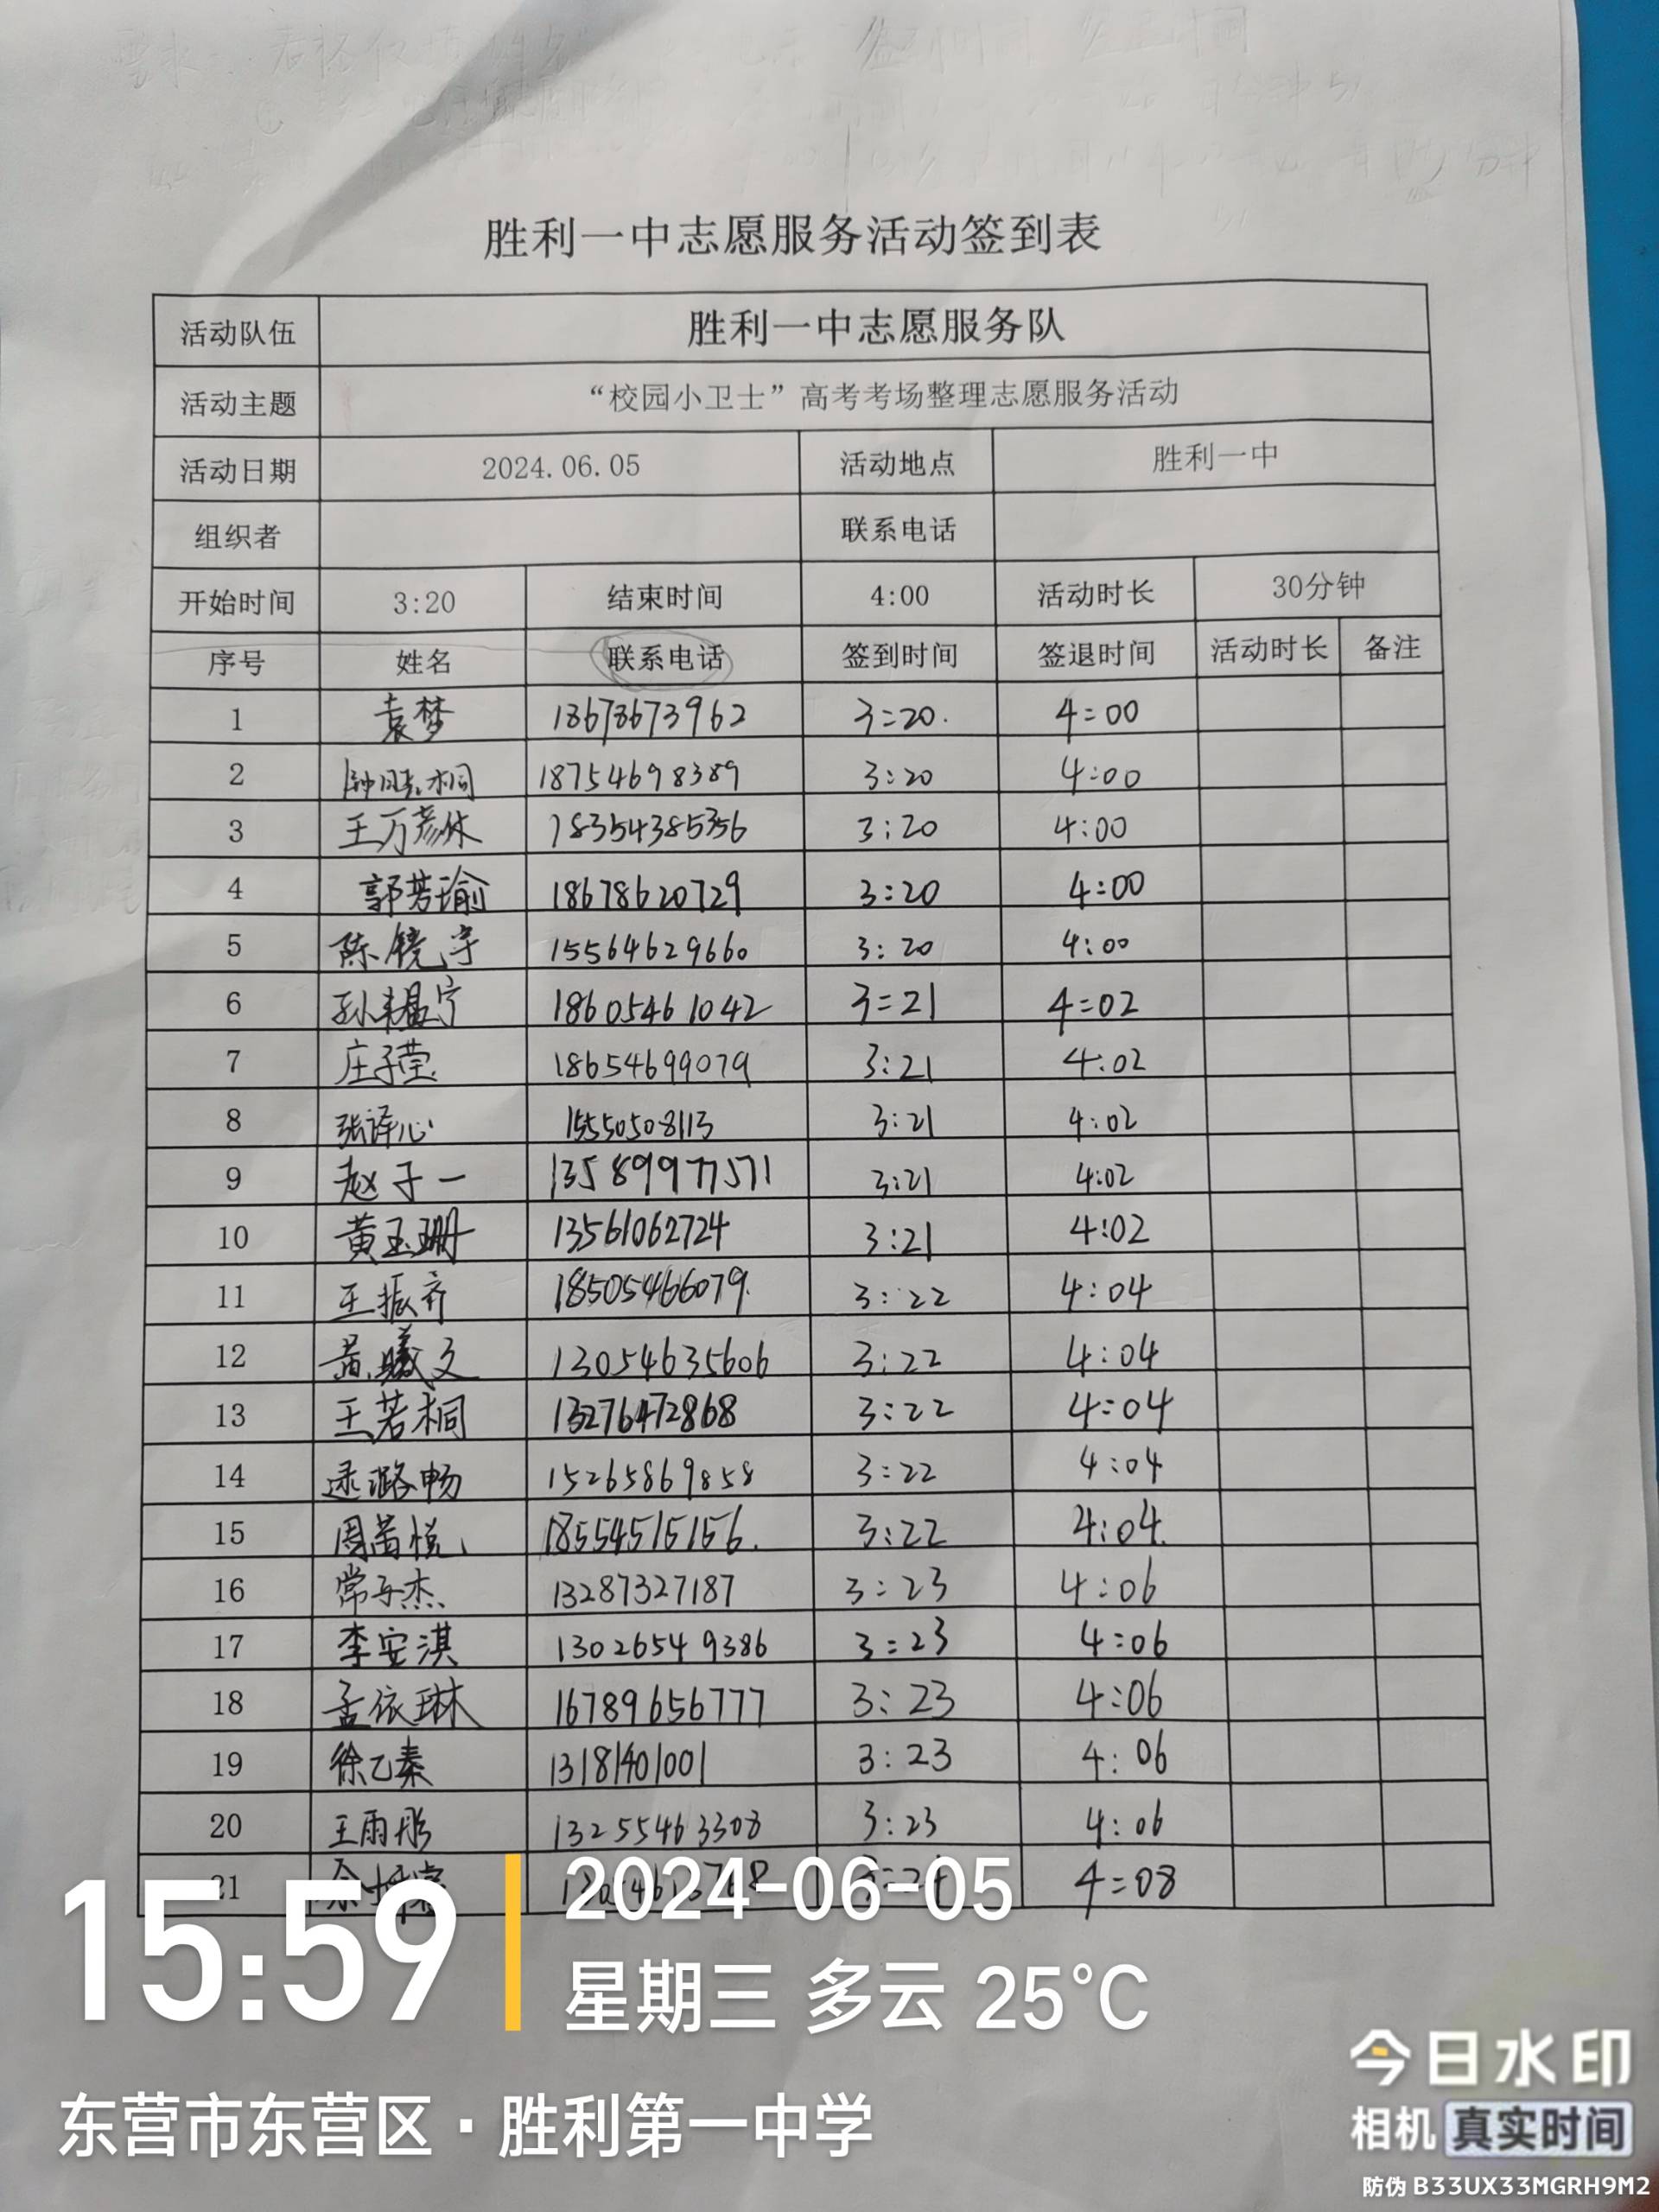 胜利一中志愿服务活动签到表
活动队伍 胜利一中志愿服务队
活动主题 “校园小卫士”高考考场整理志愿服务活动
活动日期 2024.06.05 活动地点 胜利一中
组织者 联系电话
开始时间 3:20 结束时间 4:00 活动时长 30分钟
序号 姓名 联系电话 签到时间 签退时间 活动时长 备注
1 袁梦 18678673962 3:20. 4:00
2 18754698389 3:20 4:00
3 王万彦休 18354385356 3:20 4:00
4 郭芳瑜 18678620729 3:20 4:00
5 陈镜宇 15564629660 3:20 4:00
6 18605461042 3:21 4:02
7 庄子莹 18654699079 3:21 4:02
8 张译心 15550508113 3:21 4:02
9 赵子一 13589977571 3:21 4:02
10 黄玉珊 13561062724 3:21 4:02
11 王振齐 18505466079. 3:22 4:04
12 黄曦文 13054635606 3:22 4:04
13 王若桐 13276472868 3:22 4:04
14 逯潞畅 15265869858 3:22 4:04
15 周茜悦 18554515156. 3:22 4:04.
16 常子杰 13287327187 3:23 4:06
17 李安淇 13026549386 3:23 4:06
18 孟依琳 16789656777 3:23 4:06
19 徐乙秦 13181401001 3:23 4:06
20 王雨彤 13255463308 3:23 4:06
21 3:24 4:08
15:59
2024-06-05
星期三 多云 25°C
东营市东营区·胜利第一中学
今日水印
相机 真实时间
防伪 B33UX33MGRH9M2